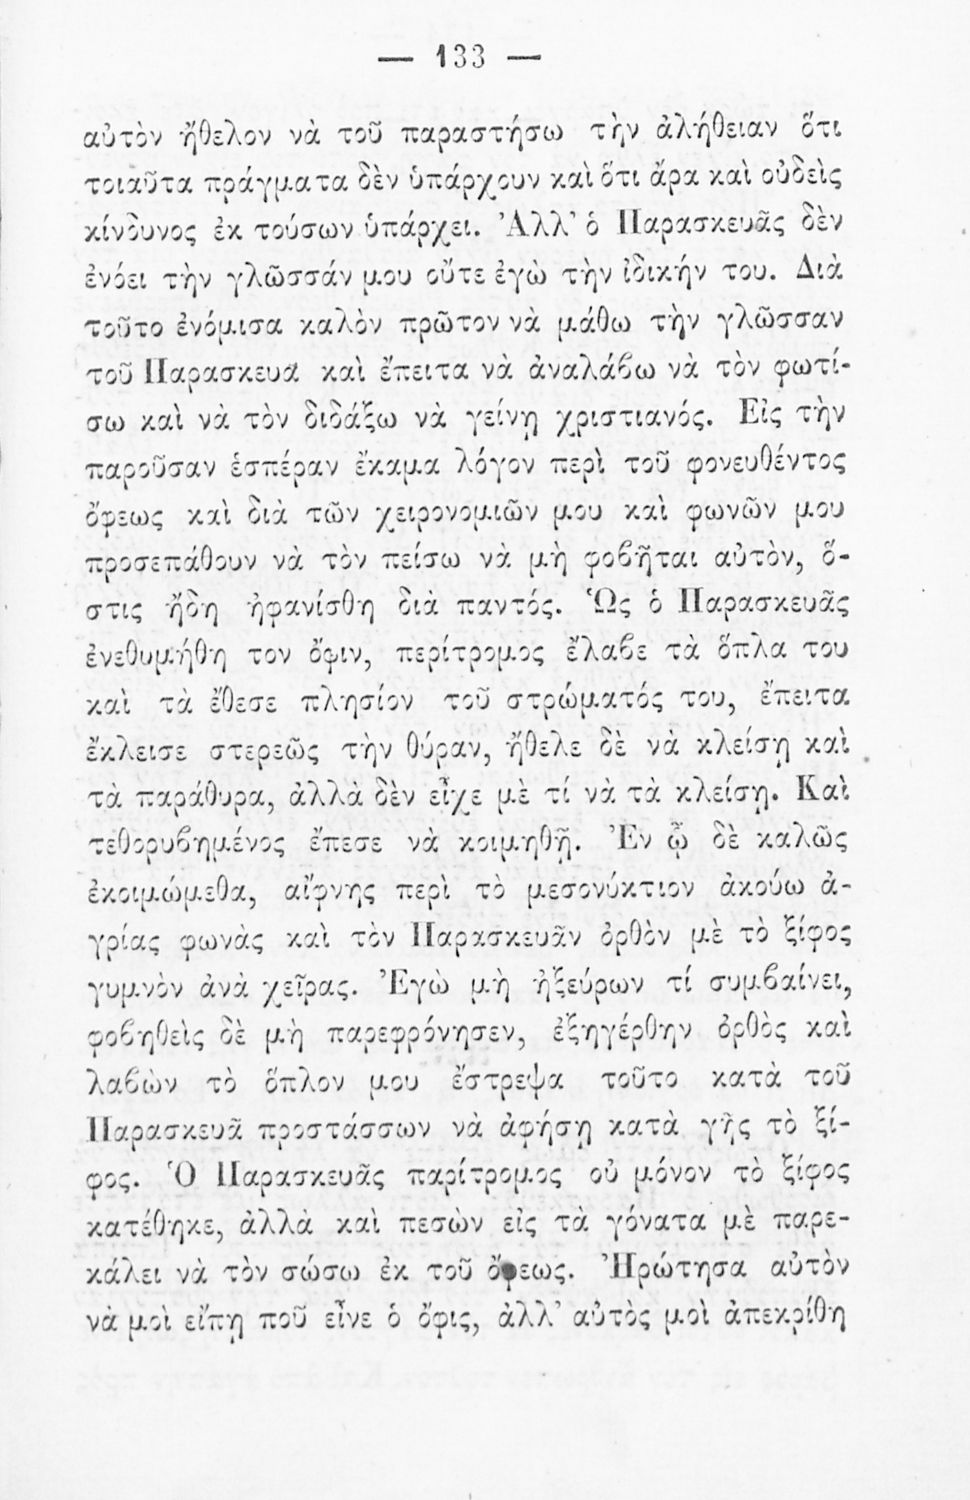 — 133 —
αὐτὸν ἤθελον νὰ τοῦ παραστήσω τὴν ἀλήθειαν ὅτι
τοιαῦτα πράγματα δὲν ὑπάρχουν καὶ ὅτι ἄρα καὶ οὐδεὶς
κίνδυνος ἐκ τούσων ὑπάρχει. Ἀλλ’ ὁ Παρασκευᾶς δὲν
ἐνόει τὴν γλῶσσάν μου οὔτε ἐγὼ τὴν ἰδικήν του. Διὰ
τοῦτο ἐνόμισα καλὸν πρῶτον νὰ μάθω τὴν γλῶσσαν
τοῦ Παρασκευᾶ καὶ ἔπειτα νὰ ἀναλάβω νὰ τὸν φωτί-
σω καὶ νὰ τὸν διδάξω νὰ γείνῃ χριστιανός. Εἰς τὴν
παροῦσαν ἑσπέραν ἔκαμα λόγον περὶ τοῦ φονευθέντος
ὄφεως καὶ διὰ τῶν χειρονομιῶν μου καὶ φωνῶν μου
προσεπάθουν νὰ τὸν πείσω νὰ μὴ φοβῆται αὐτὸν, ὅ-
στις ἤδη ἠφανίσθη διὰ παντός. Ὡς ὁ Παρασκευᾶς
ἐνεθυμήθη τον ὄφιν, περίτρομος ἔλαβε τὰ ὅπλα του
καὶ τὰ ἔθεσε πλησίον τοῦ στρώματός του, ἔπειτα
ἔκλεισε στερεῶς τὴν θύραν, ἤθελε δὲ νὰ κλείσῃ καὶ
τὰ παράθυρα, ἀλλὰ δὲν εἶχε μὲ τί νὰ τὰ κλείσῃ. Καὶ
τεθορυβημένος ἔπεσε νὰ κοιμηθῇ. Ἐν ᾧ δὲ καλῶς
ἐκοιμώμεθα, αἴφνης περὶ τὸ μεσονύκτιον ἀκούω ἀ-
γρίας φωνὰς καὶ τὸν Παρασκευᾶν ὀρθὸν μὲ τὸ ξίφος
γυμνὸν ἀνὰ χεῖρας. Ἐγὼ μὴ ἠξεύρων τί συμβαίνει,
φοβηθεὶς δὲ μὴ παρεφρόνησεν, ἐξηγέρθην ὀρθὸς καὶ
λαβὼν τὸ ὅπλον μου ἔστρεψα τοῦτο κατὰ τοῦ
Παρασκευᾶ προστάσσων νὰ ἀφήσῃ κατὰ γῆς τὸ ξί-
φος. Ὁ Παρασκευᾶς παρίτρομος οὐ μόνον τὸ ξίφος
κατέθηκε, ἀλλὰ καὶ πεσὼν εἰς τὰ γόνατα μὲ παρε-
κάλει νὰ τὸν σώσω ἐκ τοῦ ὄφεως. Ἠρώτησα αὐτὸν
νὰ μοὶ εἴπῃ ποῦ εἶνε ὁ ὄφις, ἀλλ’ αὐτὸς μοὶ ἀπεκρίθη